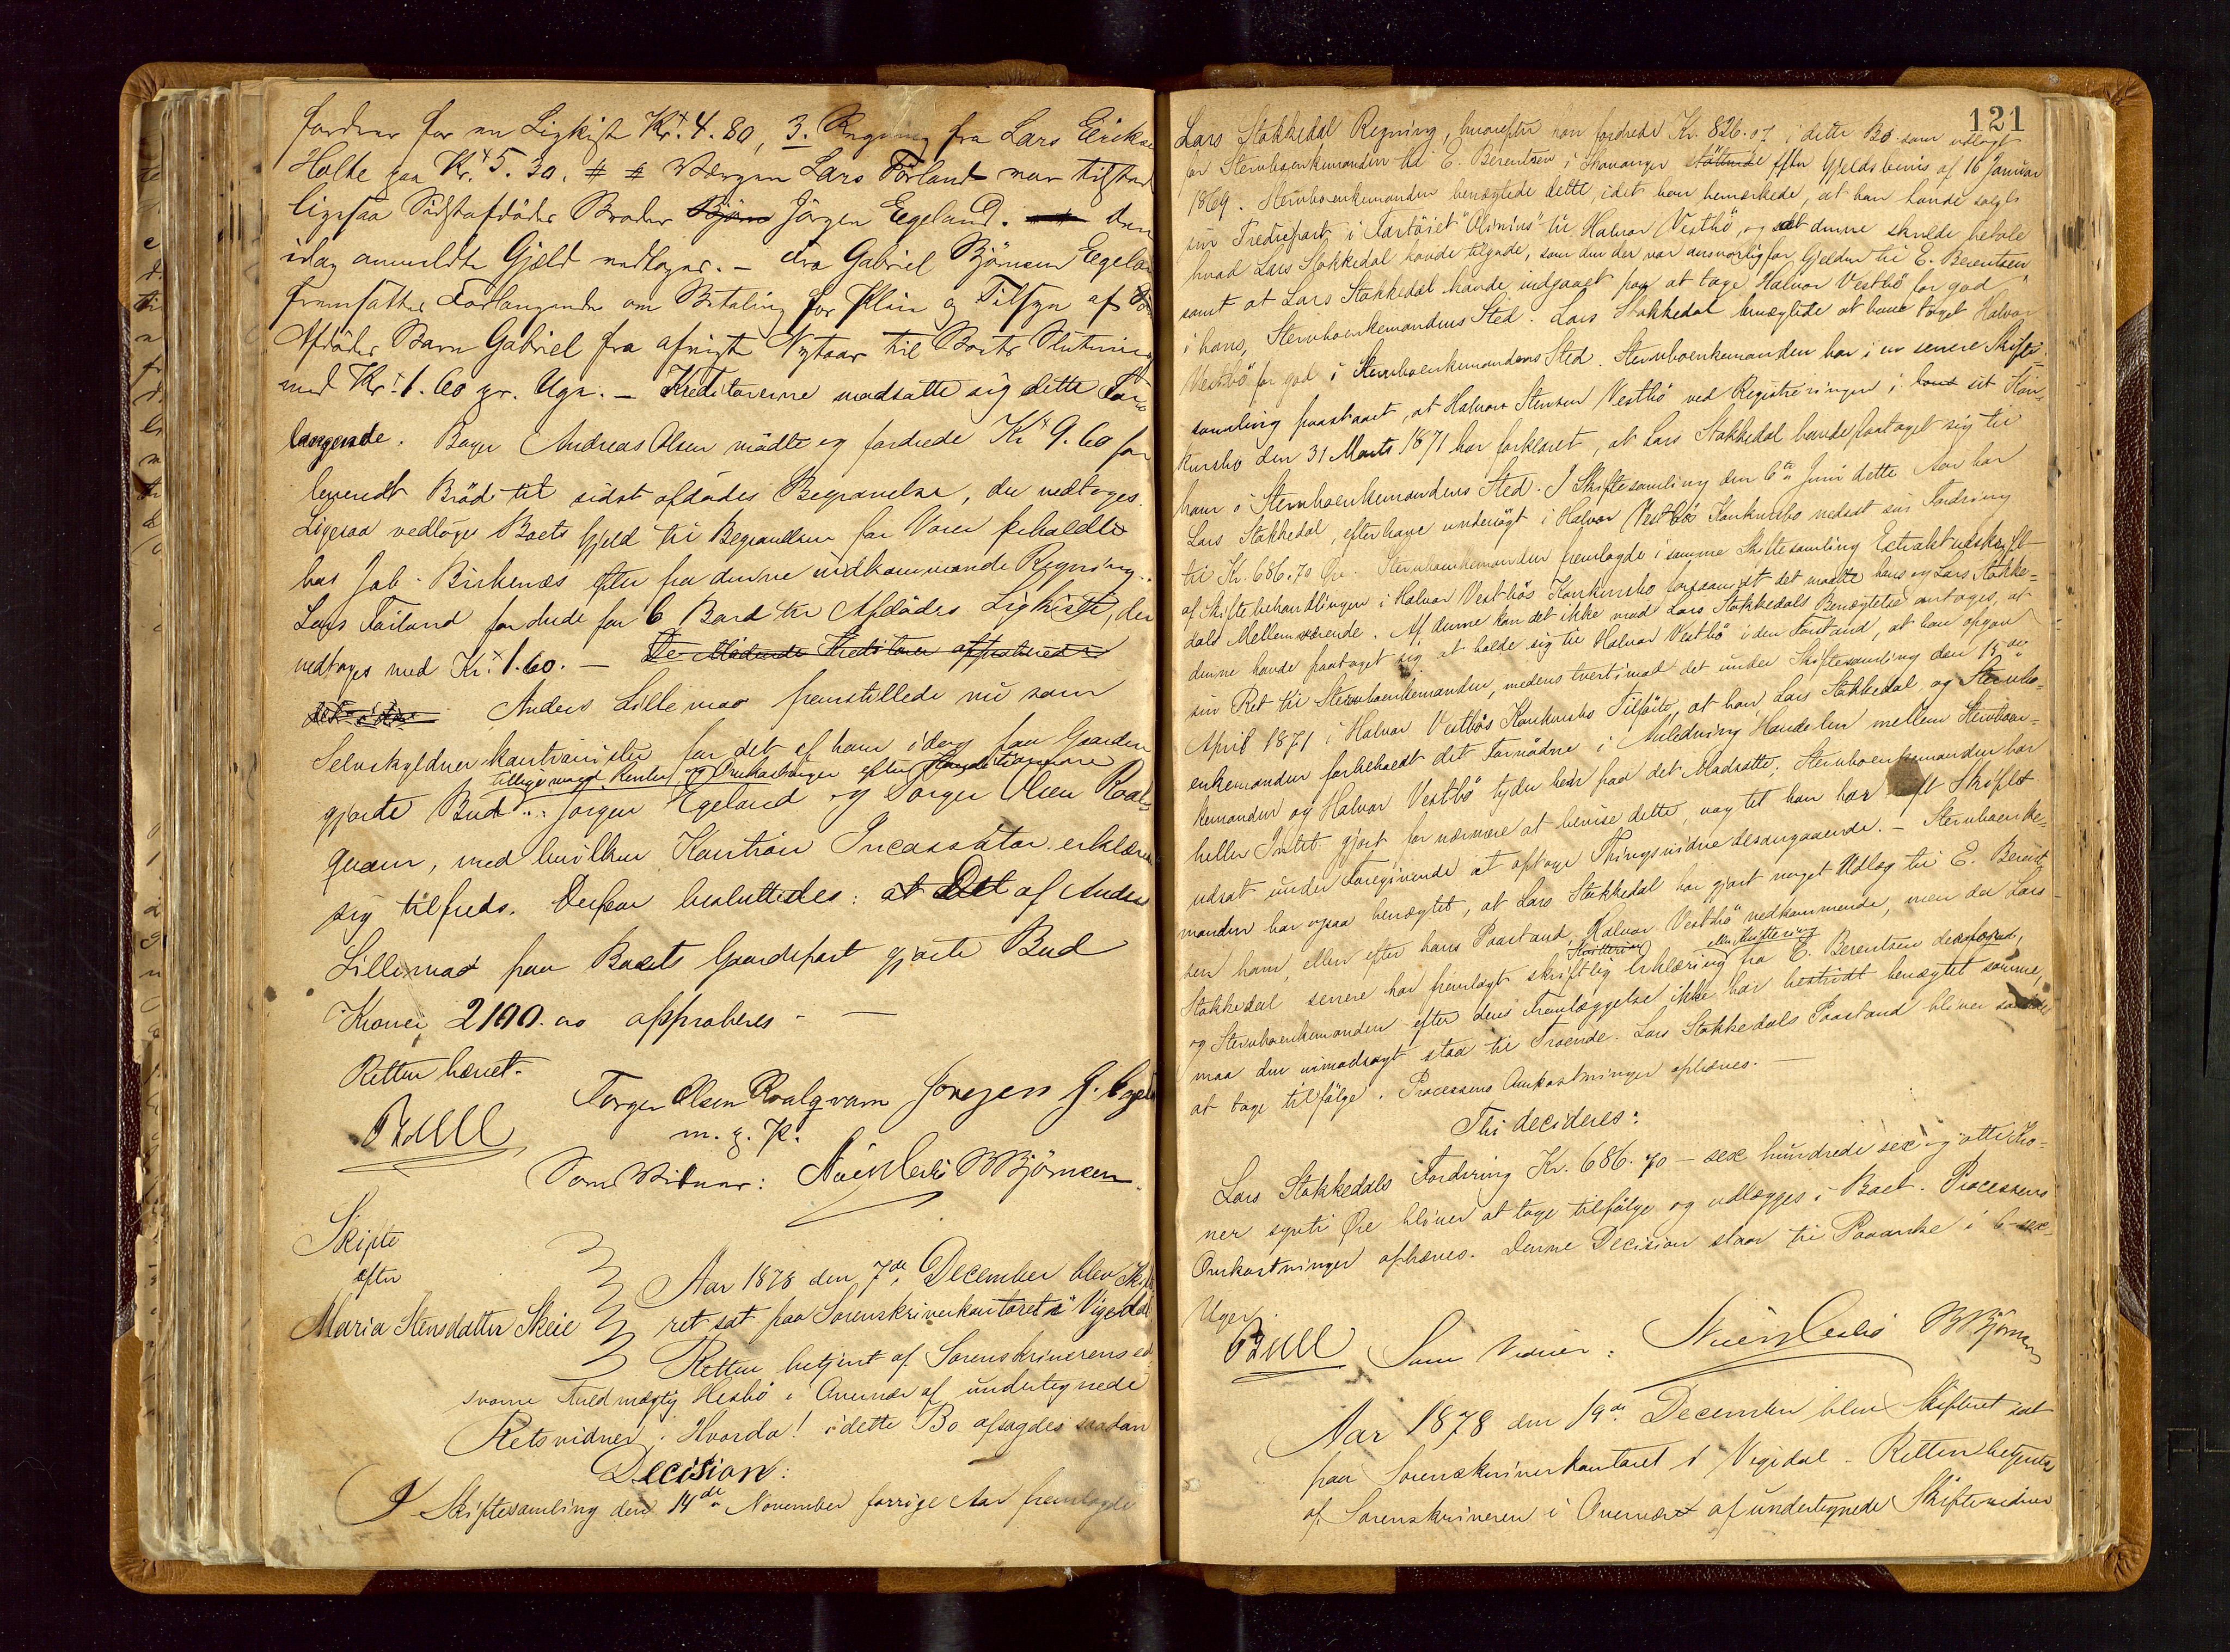 fordrer for en Ligkiste Kr. 4. 80, 3. Regning fra Lars Eeriks
Holte paa Kr. 5. 30. Værgen Lars Førland var tilsted
ligesaa Sidstafdødes Broder Bjørn Jørgen Eegeland. den
idag anmeldte Gjæld vedtoges. – Gabriel Bjørnsen Eegela
fremsatte Forlangende om Betaling for Pleie og Tilsyn af
Afdødes Barn Gabriel fra afvigte Nytaar til Boets Slutning
med Kr. 1. 60 pr. Uge. – Kreditorerne modsatte sig dette For=
langende. Bager Andreas Olsen mødte og fordrede Kr 9. 60 for
leveredt Brød til sidst afdødes Begravelse, der vedtoges.
Ligesaa vedtoges Boets Gjeld til Begravelsen for Varer erholdte
hos Jak. Birkenæs efter fra denne indkommende Regning.
Lars Førland fordrede for 6 Bord til Afdødes Ligkiste, der
vedtoges med Kr. 1. 60. – De Mødende Kreditorer
Anders Lillemoe fremstillede nu som
Selvskyldnerkautionister for det af ham idag paa Gaarden
tilligemed Renter og Omkostninger efter Konditionerne
gjorte Bud Jørgen Egeland og Torger Olsen Roal=
quam, med hvilken Kaution Incassator erklærede
sig tilfreds. Derfor besluttedes: at Det af Anders
Lillemoe paa Boets Gaardspart gjorte Bud
Kroner 2100.00 approberes. —
Retten hævet.
Bull Torger Olsen Roalqvam Jørgen G. Egeland
m. p. P.
Som Vidner: BBjørnsen
Skifte
efter
Maria Stensdatter Skeie
Aar 1878 den 7de December blev Skifte
ret sat paa Sorenskriverkontoret i Vigedal
Retten betjent af Sorenskriverens ed
svorne Fuldmægtig Hesbø i Overvær af undertegnede
Retsvidner. Hvorda! i dette Bo afsagdes saadan
Decision:
I Skiftesamling den 14de November forrige Aar fremlagde
121
Lars Stakkedal Regning, hvorefter han fordrede Kr. 826.07 i dette Bo som udlagt
for Stervboenkemanden til E. Berentsen i Stavanger støttende efter Gjeldsbevis af 16 Januar
1869. Stervboenkemanden benægtede dette, idet han bemærkede, at han havde solgt
sin Trediepart i Fartøiet "Olinius" til Halvor Vestbø, og at denne skulde betale
hvad Lars Stakkedal havde tilgode, som den der var ansvarlig for Gjelden til E. Berentsen
samt at Lars Stakkedal havde indgaaet paa at tage Halvor Vestbø for god
i hans, Stervboenkemandens Sted. Lars Stakkedal benægtede at have taget Halvor
Vestbø for god i Stervboenkemandens Sted. Stervboenkemanden har i en senere Skifte=
samling paastaaet, at Halvor Stensen Vestbø ved Registreringen i hans sit Kon=
kursbo den 31 Marts 1871 har forklaret, at Lars Stakkedal havde paataget sig til
ham i Stervboenkemandens Sted. I Skiftesamling den 6te Juni dette Aar har
Lars Stakkedal, efter have undersøgt i Halvor Vestbøs Konkursbo nedsat sin Fordring
til Kr. 686.70 Øre. Stervboenkemanden fremlagde i samme Skiftesamling Extraktudskrift
af Skiftebehandlingen i Halvor Vestbøs Konkursbo forsaavidt det maatte hans og Lars Stakke=
dals Mellemværende. Af denne kan det ikke mod Lars Stakkedals Benægtelse antages, at
denne havde paataget sig at holde sig til Halvor Vestbø i den Forstand, at han opgav
sin Ret til Stervboenkemanden, medens tvertimod det under Skiftesamling den 15de
April 1871 i Halvor Vestbøs Konkursbo Tilførte, at han, Lars Stakkedal og Stervbo=
enkemanden forbeholdt det Fornødne i Anledning Handelen mellem Stervboen=
kemanden og Halvor Vestbø tyder hen paa det Modsatte. Stervboenkemanden har
heller Intet gjort for nærmere at bevise dette, uagtet han har Skiftet
udsat under Foregivende at optage Thingsvidne desangaaende. – Stervboenke=
manden har ogsaa benægtet, at Lars Stakkedal har gjort noget Udlæg til E. Berent
sen ham, eller efter hans Paastand, Halvor Vestbø vedkommende, men da Lars
eller Kvittering
Stakkedal senere har fremlagt skriftlig Erklæring fra E. Berentsen desangaaende,
og Stervboenkemanden efter dens Fremlæggelse ikke har bestridt benægtet samme,
maa den uimodsagt staa til Troende. Lars Stakkedals Paastand bliver saaledes
at tage tilfølge. Processens Omkostninger ophæves. —
Thi decideres:
Lars Stakkedals Fordring Kr. 686. 70 – sex hundrede sex og otti Kro=
ner sytti Øre bliver at tage tilfølge og udlægges i Boet. Processens
Omkostninger ophæves. Denne Decision staar til Paaanke i 6 – sex
Uger.
Bull Som Vidner: BBjørnsen
Aar 1878 den 19de December blev Skifteret sat
paa Sorenskriverkontoret i Vigedal – Retten betjentes
af Sorenskriveren i Overvær af undertegnede Skiftevidner